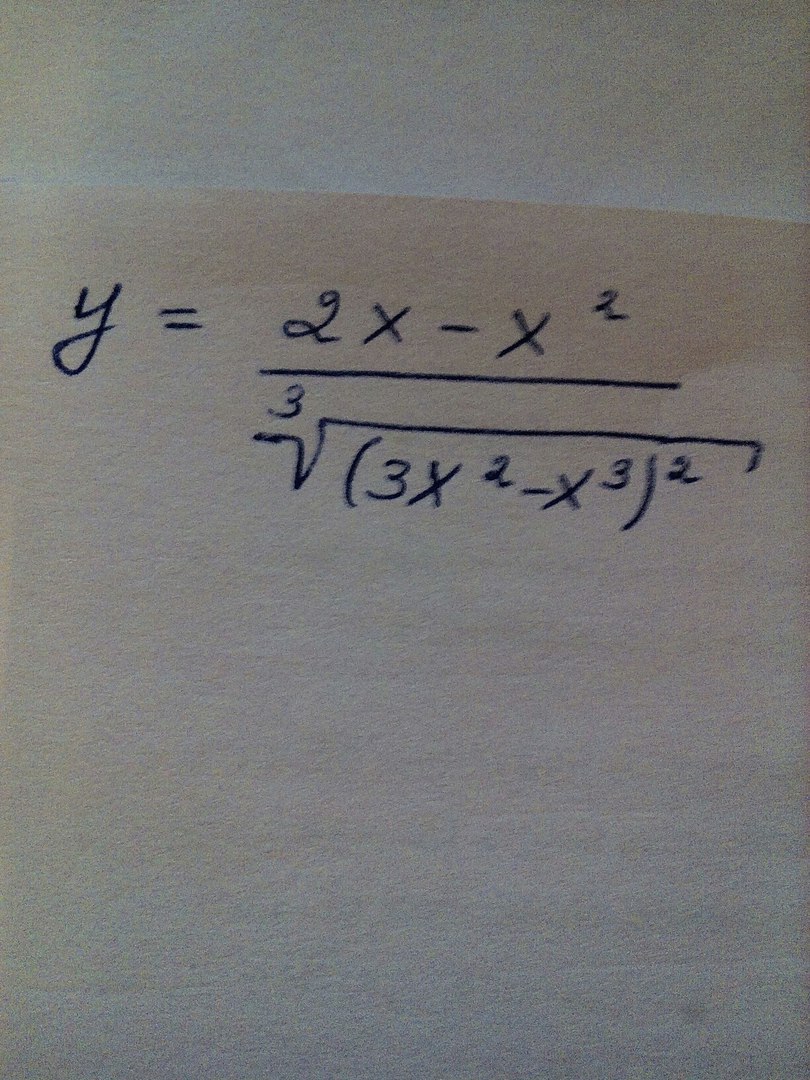 y = \frac{2x - x^2}{\sqrt[3]{(3x^2 - x^3)^2}}